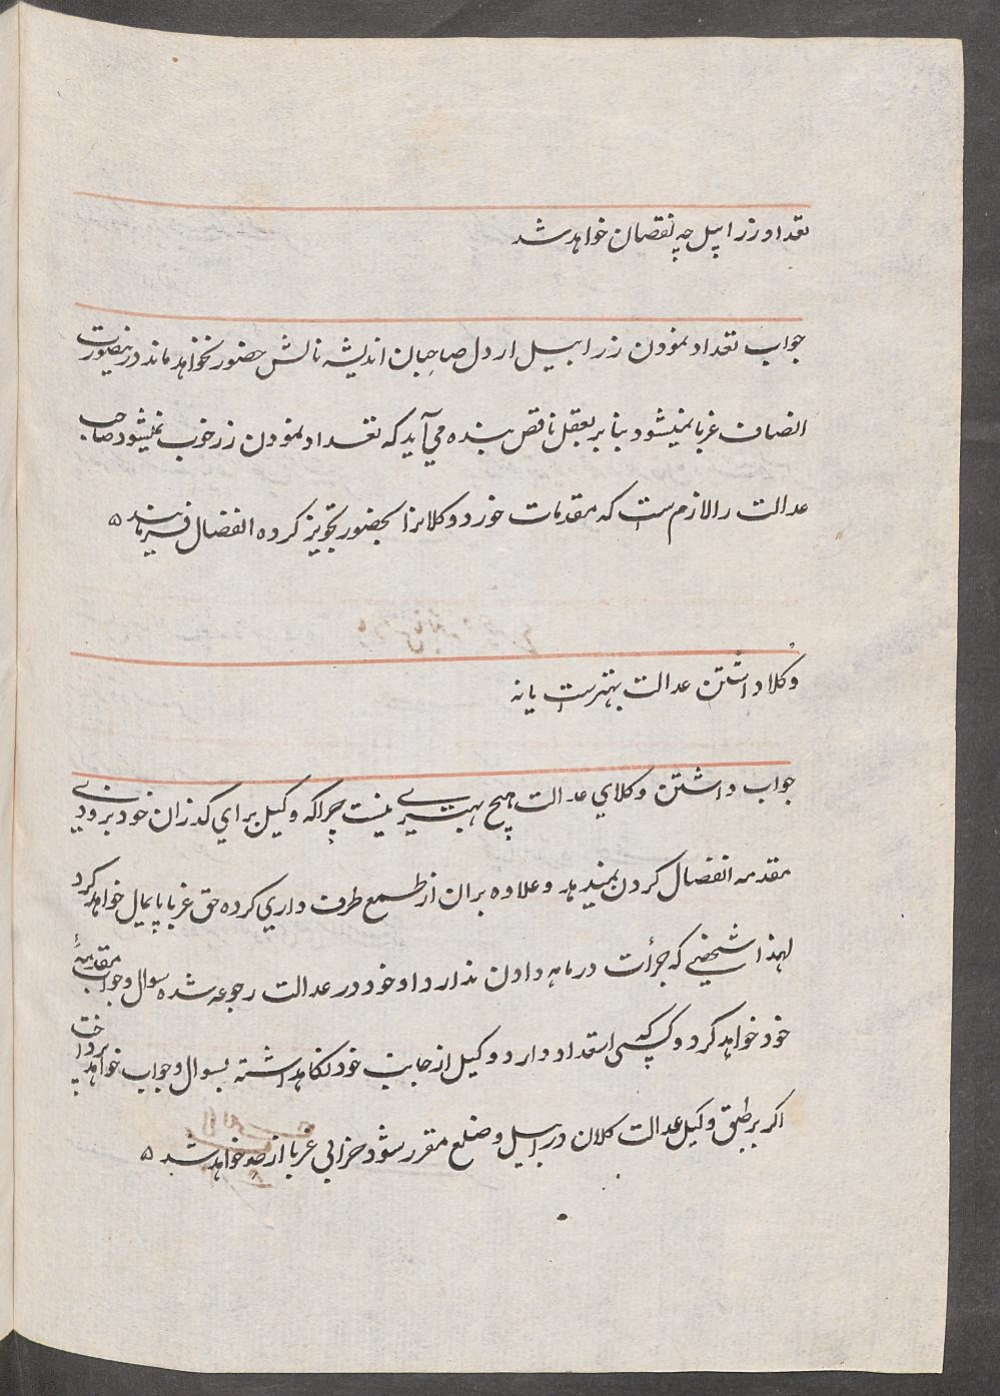 تعداد زر اپیل چه نقصان خواهد شد
جواب تعداد نمودن زر اپیل از دل صاحبان اندیشه نالش حضور نخواهد ماند درینصورت
انصاف غربا نمیشود بنا بر بعقل ناقص بنده می آید که تعداد نمودن زر خوب نمیشود صاحب
عدالت را لازم ست که مقدمات خورد و کلانرا بحضور تجویز کرده انفصال فرمایند ۵
وکلا داشتن عدالت بهتر ست یا نه
جواب داشتن وکلای عدالت هیچ بهتری نیست چراکه وکیل برای گذران خود بزودی
مقدمه انفصال کردن نمیدهد و علاوه بران از طمع طرف داری کرده حق غربا پایمال خواهد کرد
لهذا شخصی که جرأت درماهه دادن ندارد او خود در عدالت رجوعه شده سوال و جواب مقدمهٔ
خود خواهد کرد و کسی که استعداد دارد وکیل از جانب خود نگاهداشته بسوال و جواب خواهد پرداخت
اگر بر طبق وکیل عدالت کلان در اپیل و ضلع مقرر شود خرابی غربا از حد خواهد شد ۵